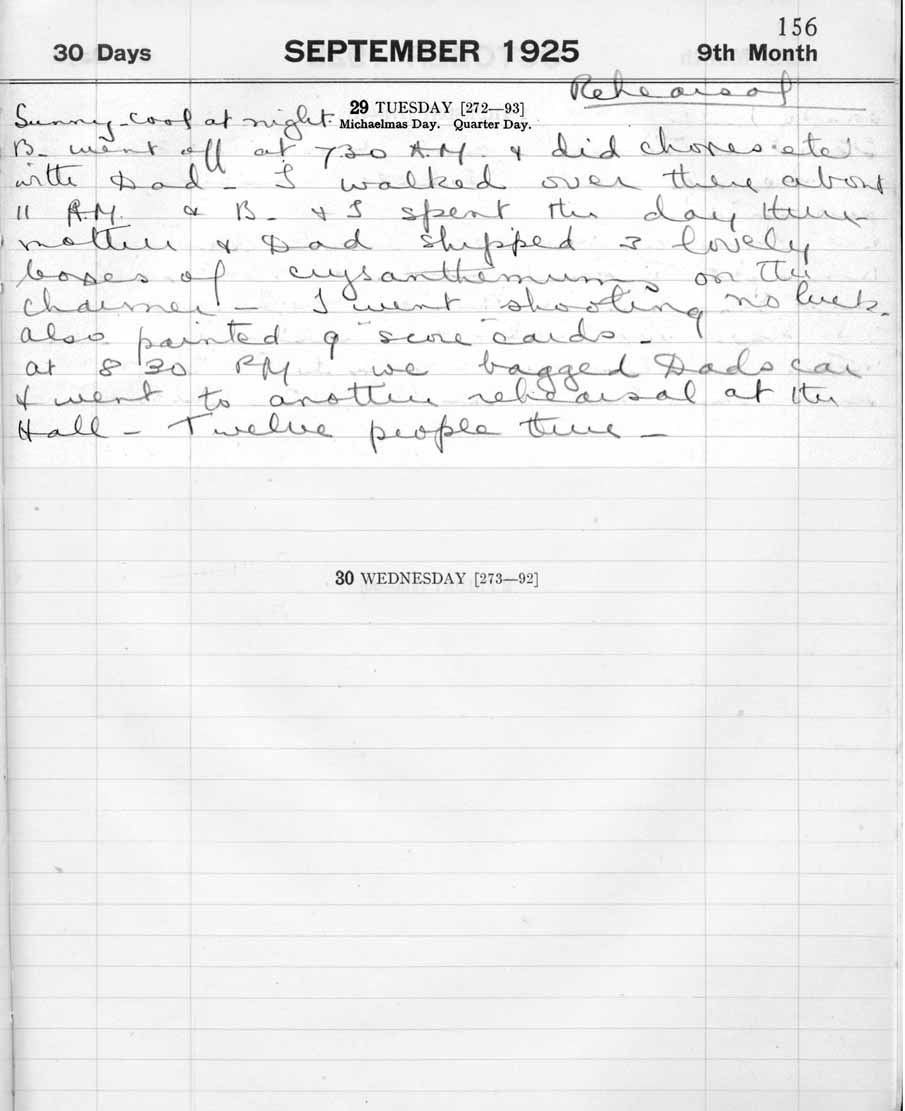 156
30 Days SEPTEMBER 1925 9th Month
Rehearsal
29 TUESDAY [272—93]
Sunny - cool at night.
Michaelmas Day. Quarter Day.
B. went off at 730 A.M. & did chores etc
with Dad - I walked over there about
11 A.M. & B. & I spent the day there
mother & Dad shipped 3 lovely
boxes of crysanthemums on the
charmer - I went shooting no luck.
also painted 9 "score" cards -
at 8 30 PM we bagged Dads car
& went to another rehearsal at the
Hall - Twelve people there -
30 WEDNESDAY [273—92]